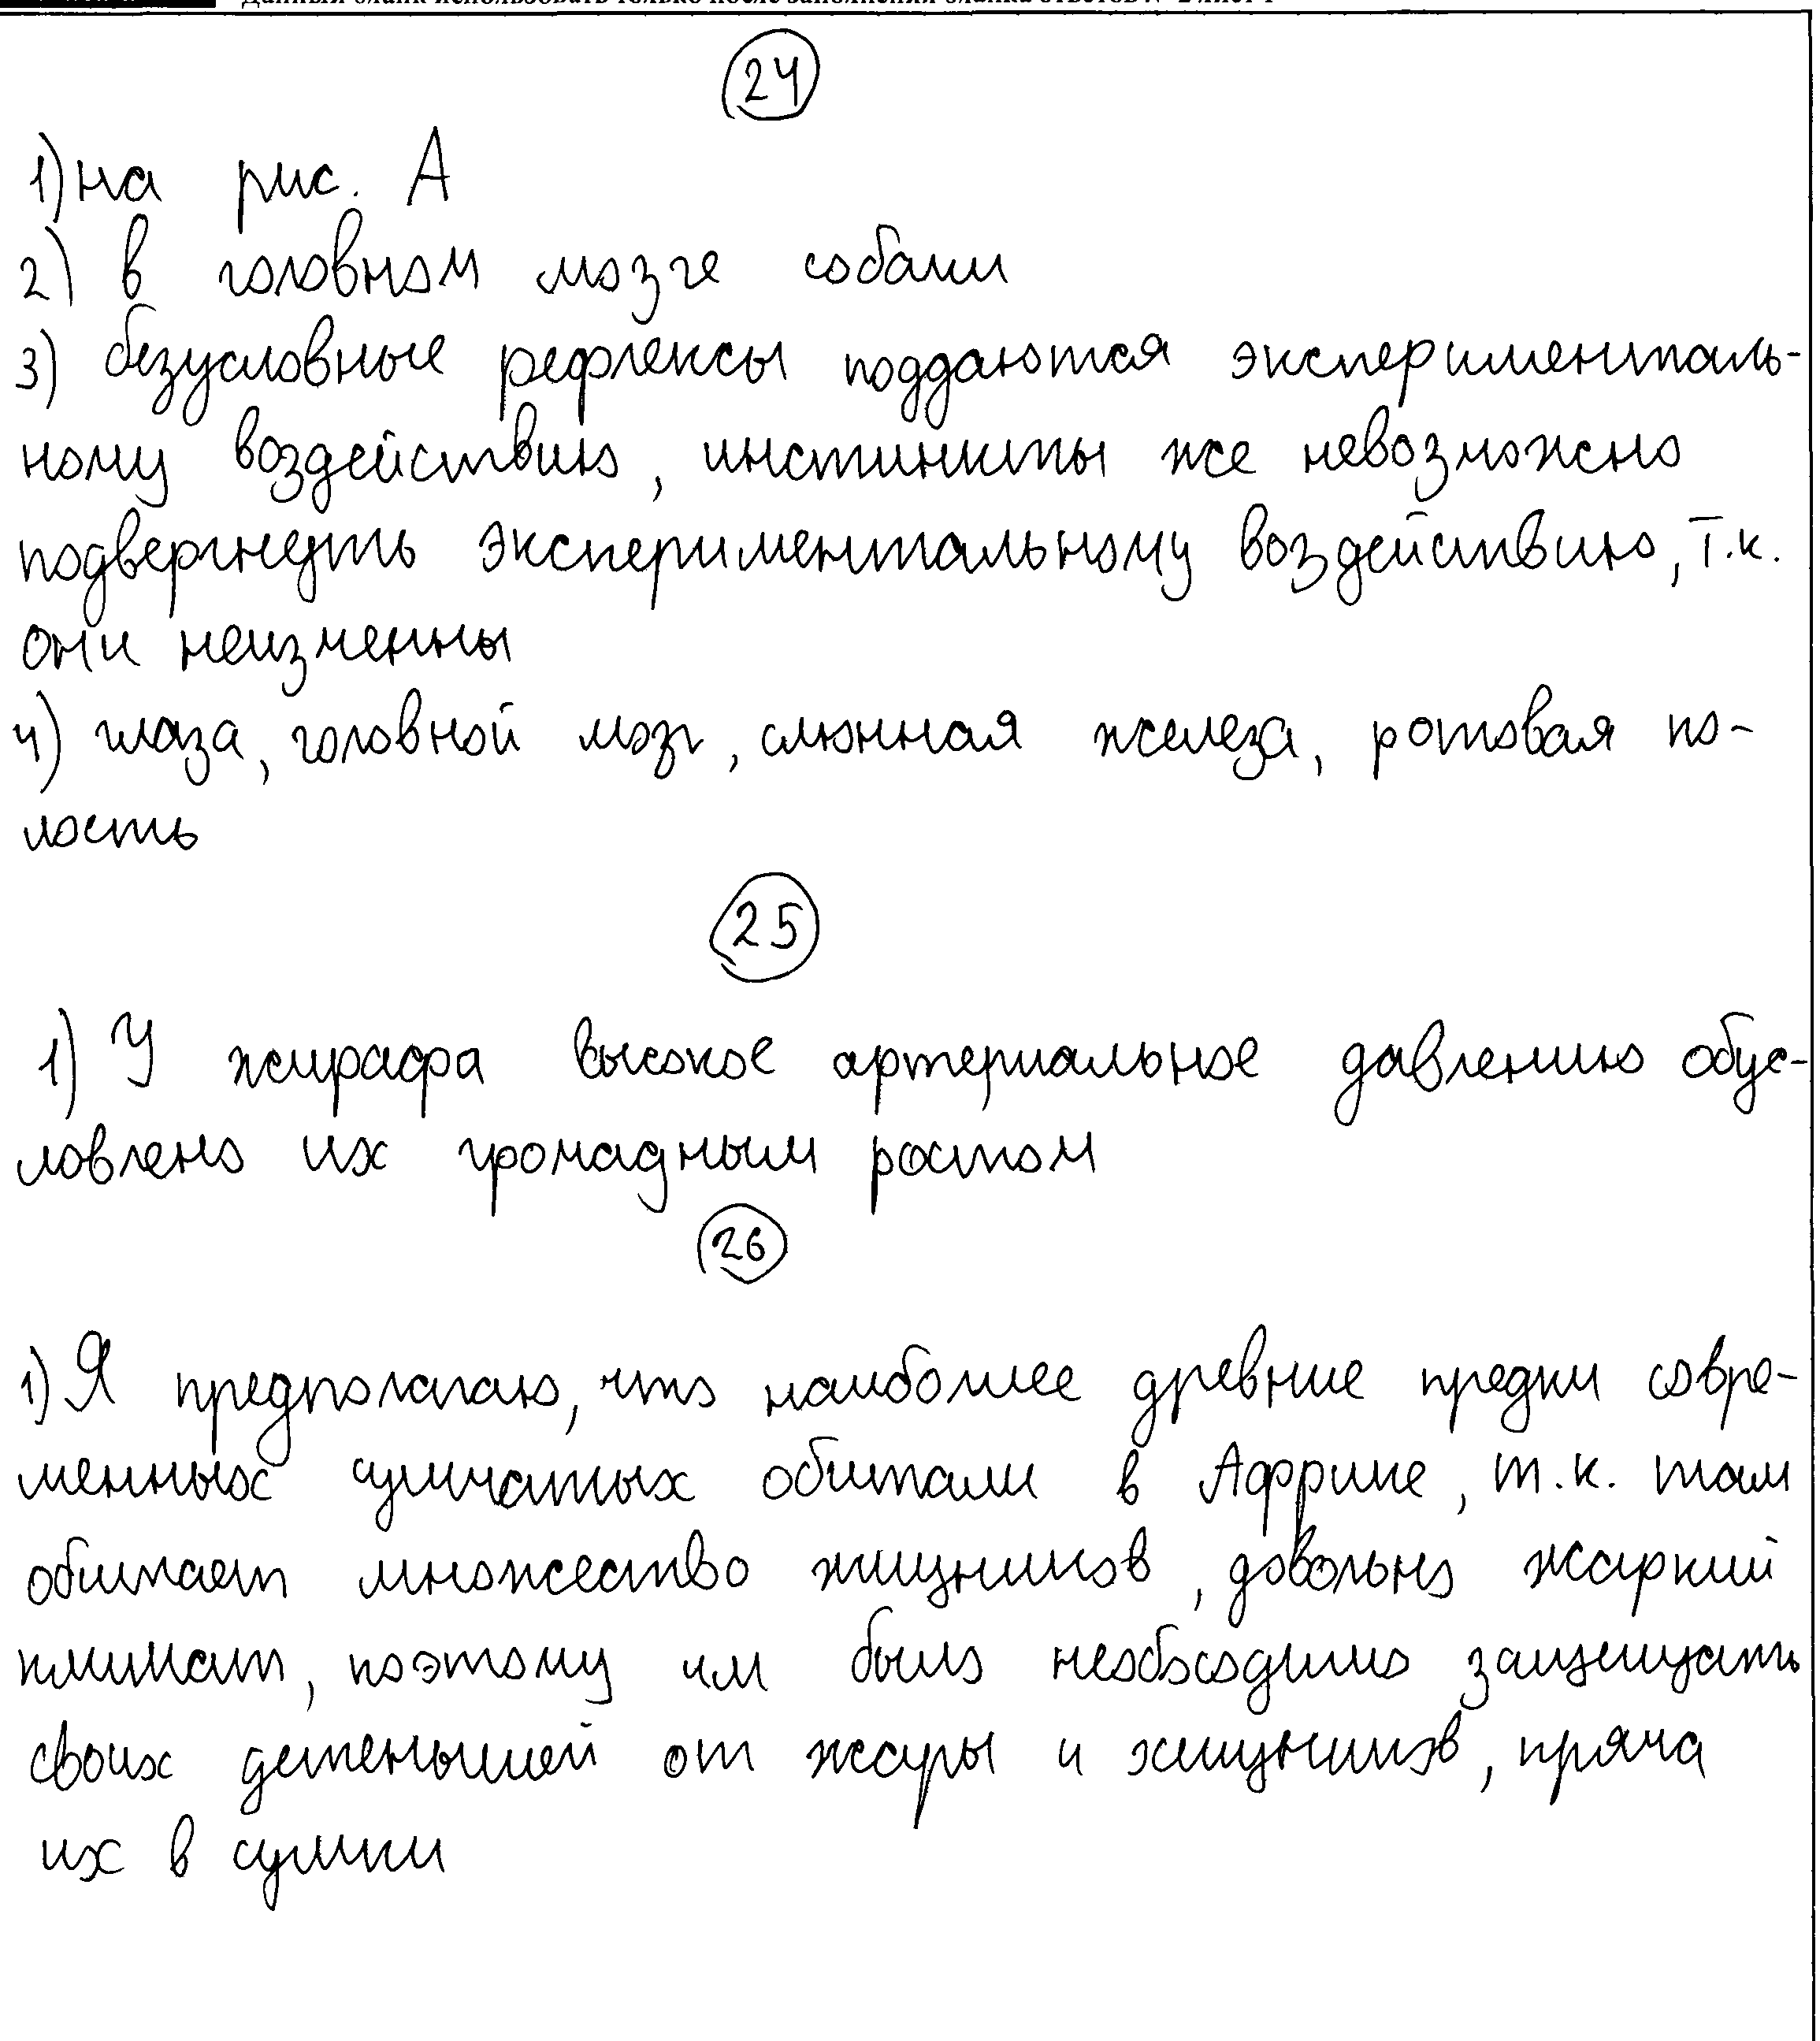 Данный бланк использовать только после заполнения бланка ответов № 2 лист 1
24
1) на рис. А
2) в головном мозге собаки
3) безусловные рефлексы поддаются эксперименталь-
ному воздействию, инстинкты же невозможно
подвергнуть экспериментальному воздействию, т.к.
они неизменны
4) глаза, головной мозг, слюнная железа, ротовая по-
лость
25
1) У жирафа высокое артериальное давлению обус-
ловлено их громадным ростом
26
1) Я предполагаю, что наиболее древние предки совре-
менных сумчатых обитали в Африке, т.к. там
обитает множество хищников, довольно жаркий
климат, поэтому им было необходимо защищать
своих детенышей от жары и хищников, пряча
их в сумки